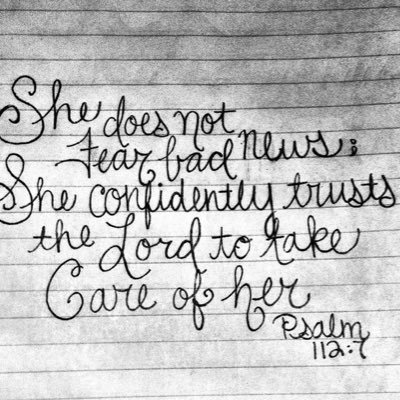 She does not
fear bad news;
She confidently trusts
the Lord to take
Care of her
Psalm
112:7